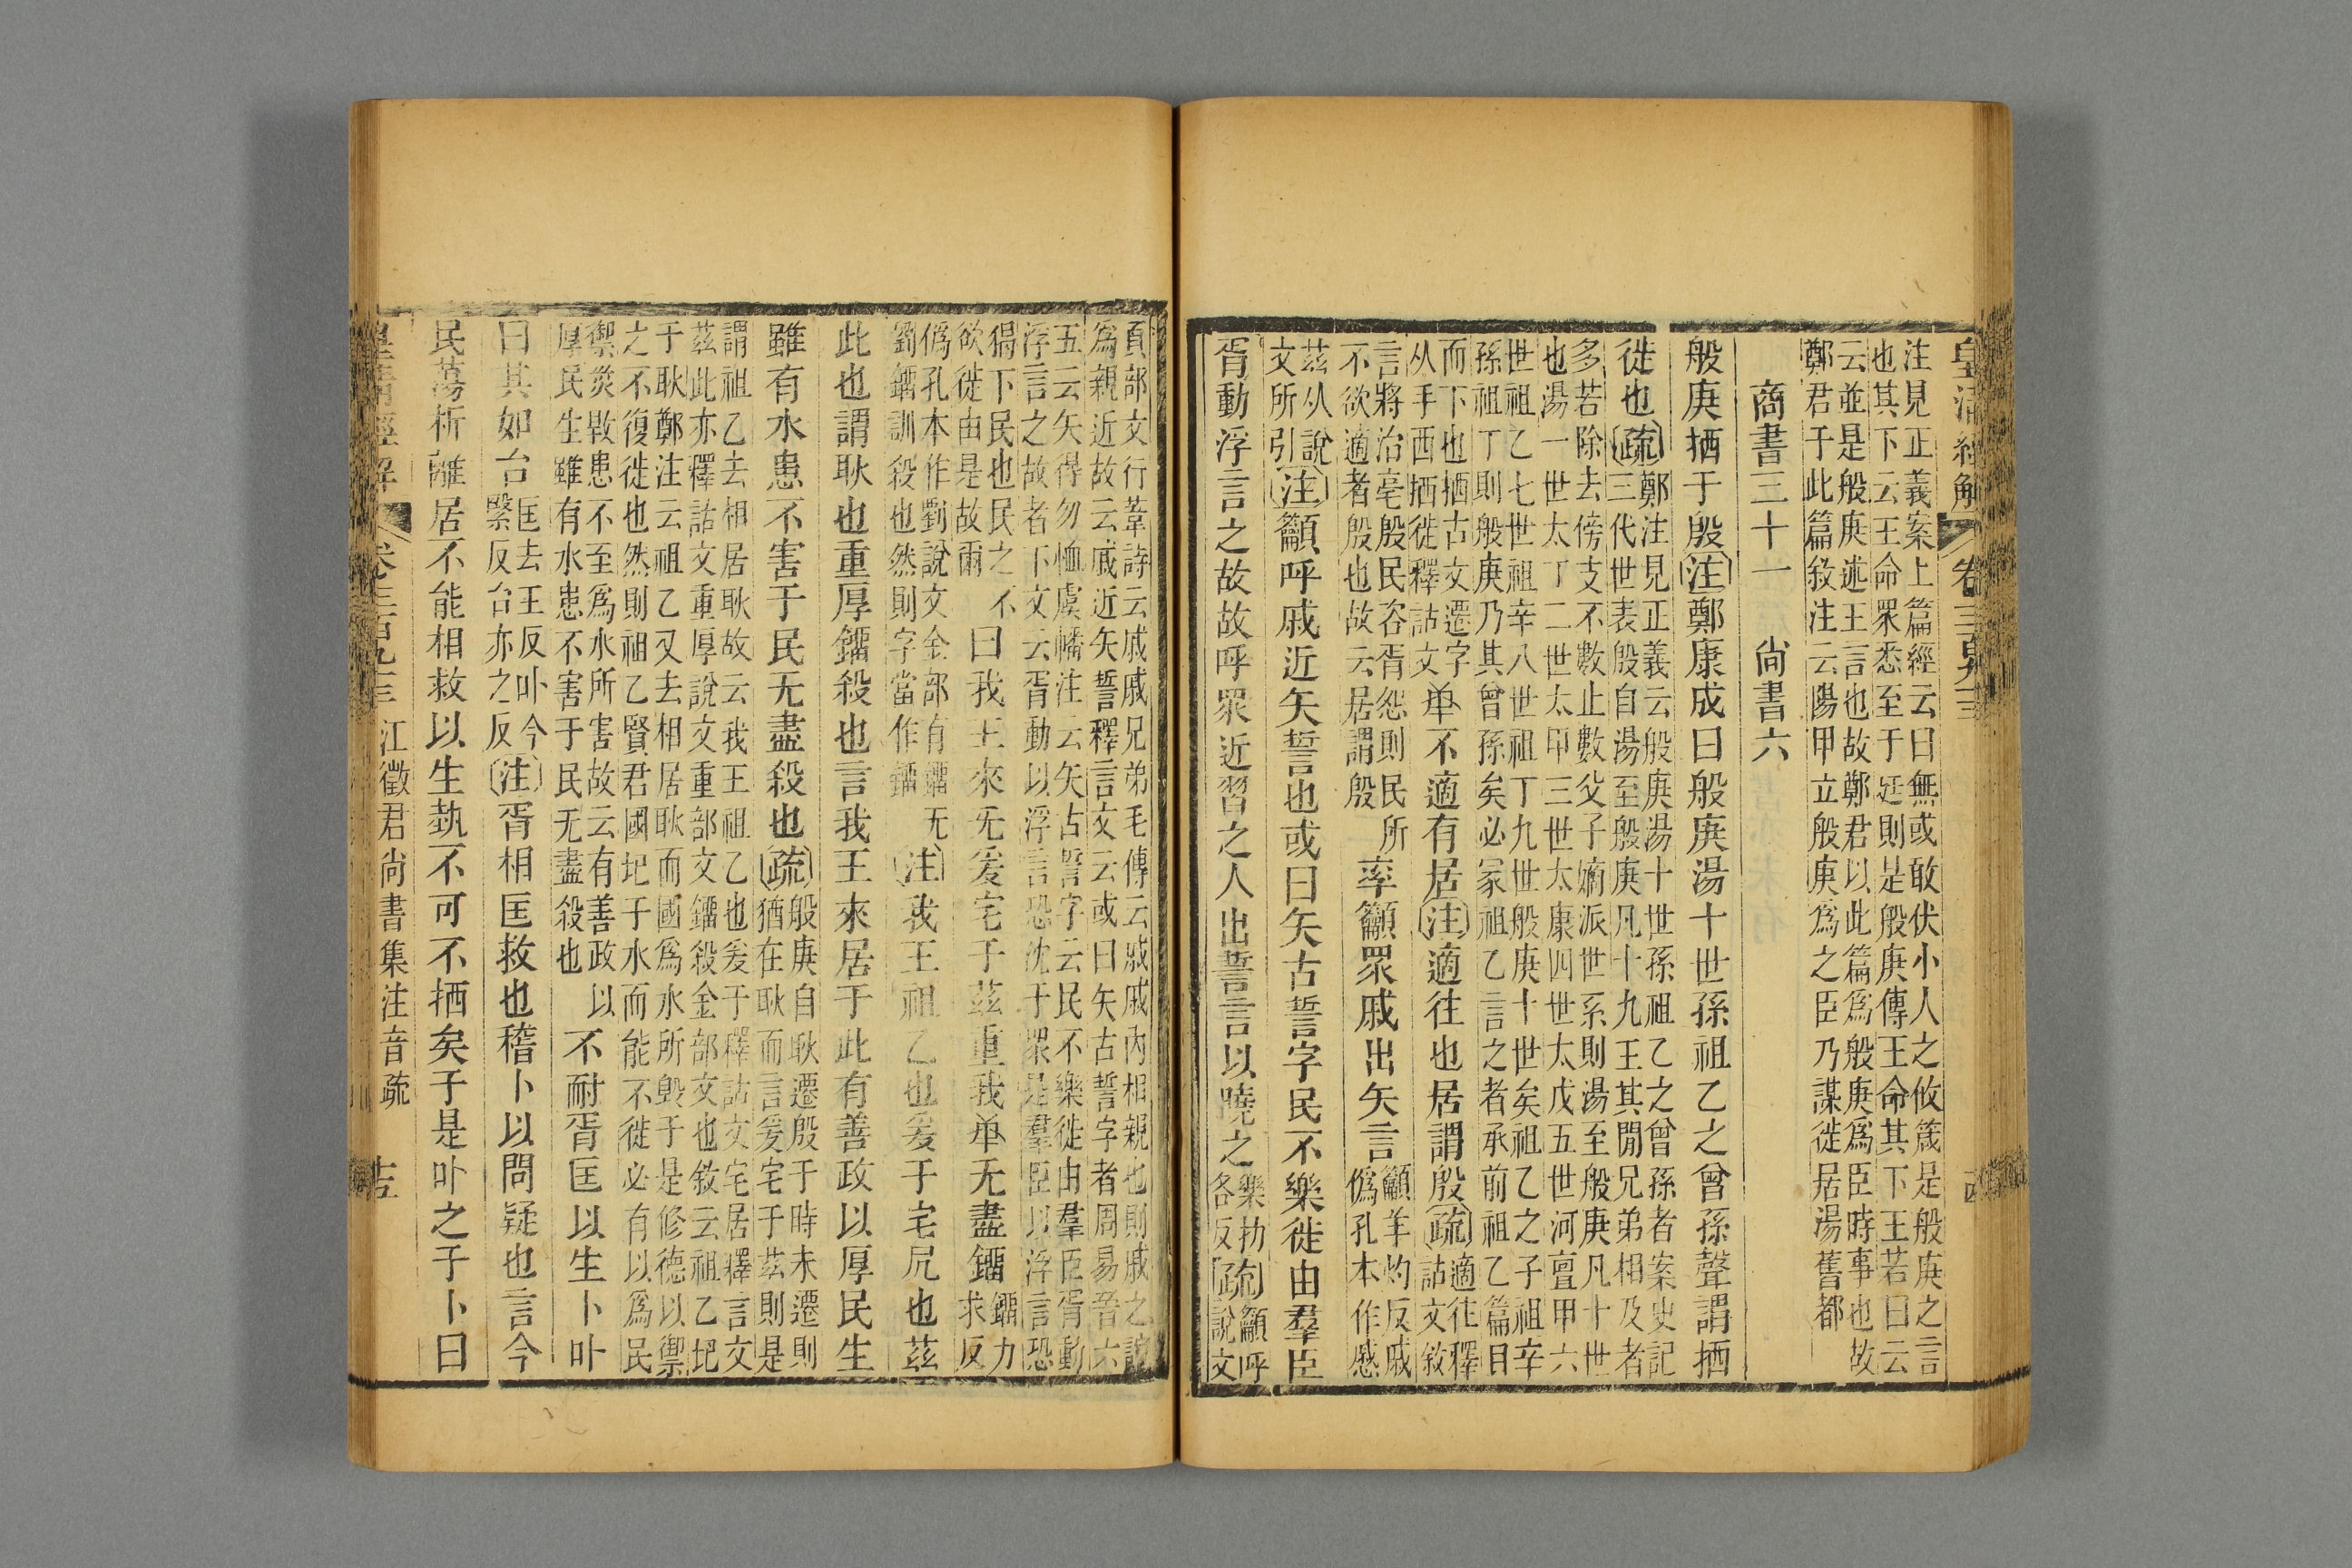 皇清經解 卷三百九十三
注見正義案上篇經云曰無或敢伏小人之攸箴是般庚之言
也其下云王命眾悉至于廷則是般庚傳王命其下王若曰云
云並是般庚述王言也故鄭君以此篇為般庚為臣時事也故
鄭君于此篇敘注云陽甲立般庚為之臣乃謀徙居湯舊都
商書三十一 尚書六
般庚拪于殷注鄭康成曰般庚湯十世孫祖乙之曾孫聲謂拪
徙也疏
鄭注見正義云般庚湯十世孫祖乙之曾孫者案史記
三代世表殷自湯至般庚凡十九王其閒兄弟相及者
多若除去傍支不數止數父子嫡派世系則湯至般庚凡十世
也湯一世太丁二世太甲三世太康四世太戊五世河亶甲六
世祖乙七世祖辛八世祖丁九世般庚十世矣祖乙之子祖辛
孫祖丁則般庚乃其曾孫矣必冡祖乙言之者承前祖乙篇目
而下也拪古文遷字
从手西拪徙釋詁文
不適有居注適往也居謂殷疏
適往釋
詁文敘
言將治亳殷民咨胥怨則民所
不欲適者殷也故云居謂殷
率籲眾戚出矢言
籲羊灼反戚
偽孔本作慼
茲从說
文所引
注籲呼戚近矢誓也或曰矢古誓字民不樂徙由羣臣
胥動浮言之故故呼眾近習之人出誓言以曉之
樂扐
各反
疏
籲呼
說文
頁部文行葦詩云戚戚兄弟毛傳云戚戚內相親也則戚之誼
為親近故云戚近矢誓釋言文云或曰矢古誓字者周易晉六
五云矢得勿恤虞幡注云矢古誓字云民不樂徙由羣臣胥動
浮言之故者下文云胥動以浮言恐沈于眾是羣臣以浮言恐
猲下民也民之不
欲徙由是故爾
曰我王來无爰宅于茲重我无盡鎦
鎦力
求反
偽孔本作劉說文金部有鎦无
劉鎦訓殺也然則字當作鎦
注我王祖乙也爰于宅凥也茲
此也謂耿也重厚鎦殺也言我王來居于此有善政以厚民生
雖有水患不害于民无盡殺也疏
般庚自耿遷殷于時未遷則
猶在耿而言爰宅于茲則是
謂祖乙去相居耿故云我王祖乙也爰于釋詁文宅居釋言文
茲此亦釋詁文重厚說文重部文鎦殺金部文也敘云祖乙圮
于耿鄭注云祖乙又去相居耿而國為水所毀于是修德以禦
之不復徙也然則祖乙賢君國圮于水而能不徙必有以為民
禦災敗患不至為水所害故云有善政以
厚民生雖有水患不害于民无盡殺也
不耐胥匡以生卜卟
曰其如台
匡去王反卟今
緊反台亦之反
注胥相匡救也稽卜以問疑也言今
民蕩析離居不能相救以生埶不可不拪矣于是卟之于卜曰
皇清經解 卷三百九十三 江徵君尚書集注音疏